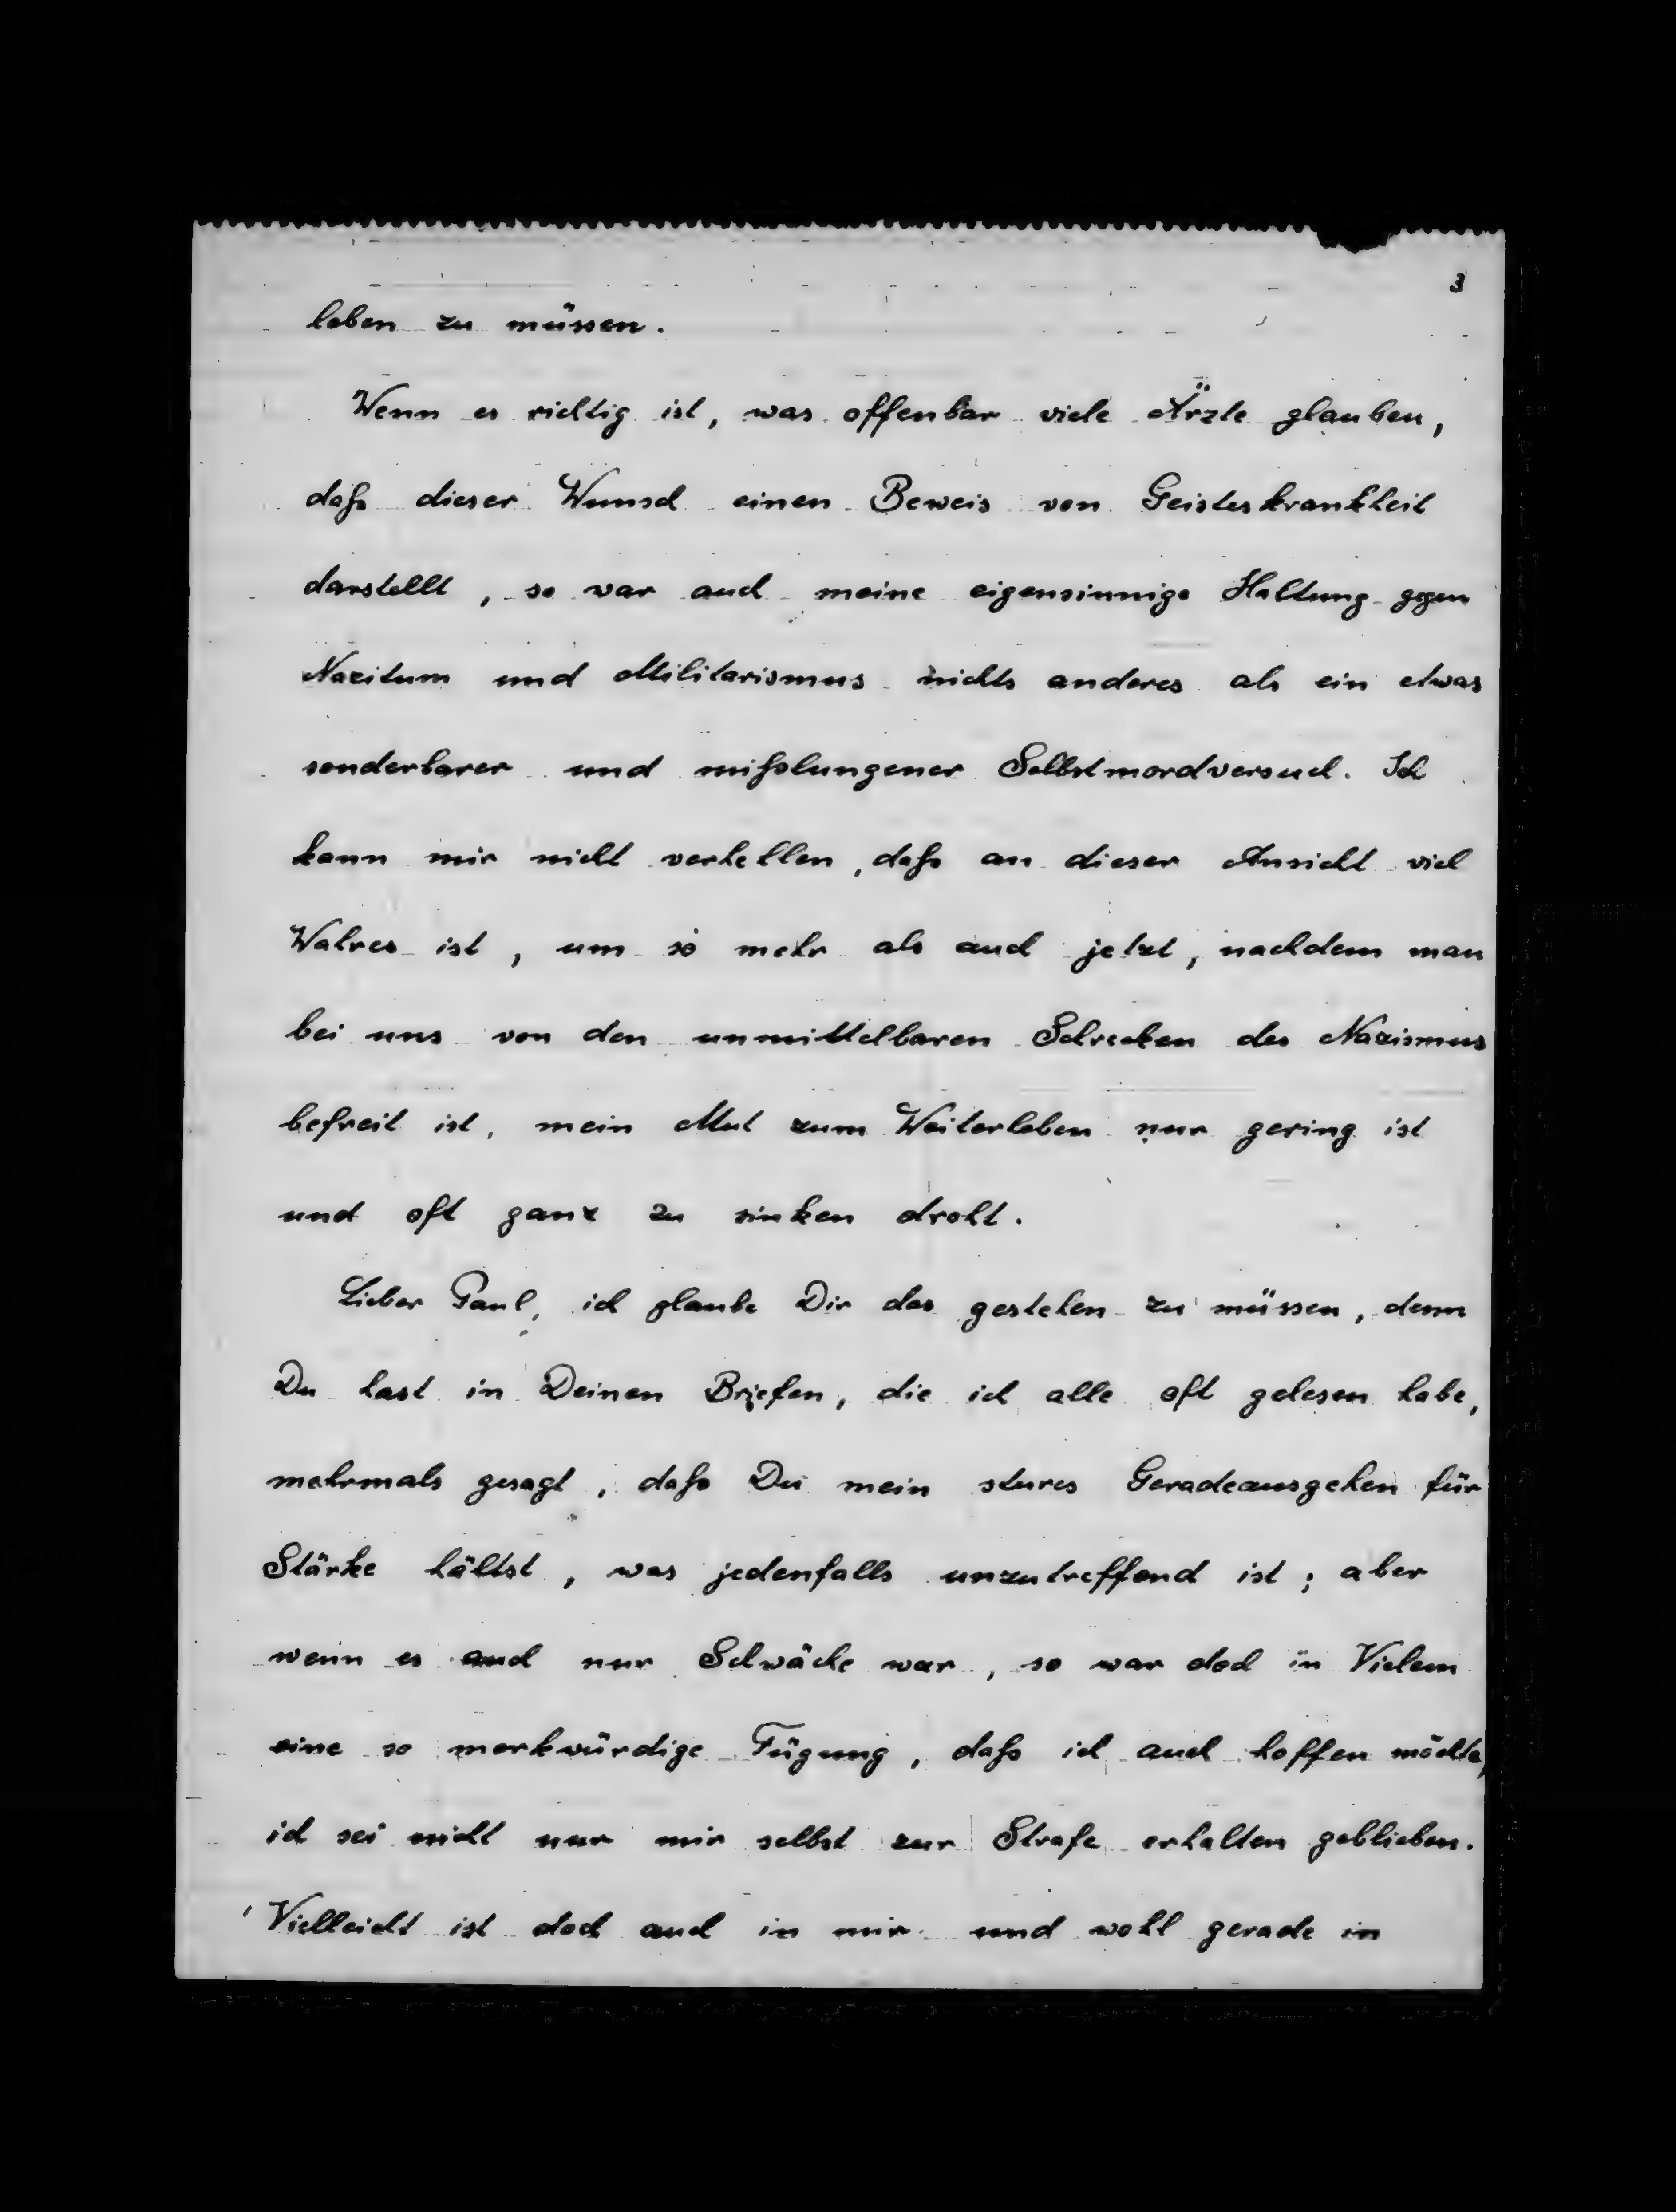 3
leben zu müssen.
Wenn es richtig ist, was offenbar viele Ärzte glauben,
daß dieser Wunsch einen Beweis von Geisteskrankheit
darstellt, so war auch meine eigensinnige Haltung gegen
Nazitum und Militarismus nichts anderes als ein etwas
sonderbarer und mißlungener Selbstmordversuch. Ich
kann mir nicht verhehlen, daß an dieser Ansicht viel
Wahres ist, um so mehr als auch jetzt, nachdem man
bei uns von den unmittelbaren Schrecken des Nazismus
befreit ist, mein Mut zum Weiterleben nur gering ist
und oft ganz zu sinken droht.
Lieber Paul, ich glaube Dir das gestehen zu müssen, denn
Du hast in Deinen Briefen, die ich alle oft gelesen habe,
mehrmals gesagt, daß Du mein stures Geradeausgehen für
Stärke hältst, was jedenfalls unzutreffend ist; aber
wenn es auch nur Schwäche war, so war doch in Vielem
eine so merkwürdige Fügung, daß ich auch hoffen möchte,
ich sei nicht nur mir selbst zur Strafe erhalten geblieben.
Vielleicht ist doch auch in mir und wohl gerade in